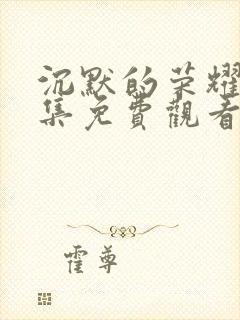 沉默的荣耀
集免費觀看
霍尊